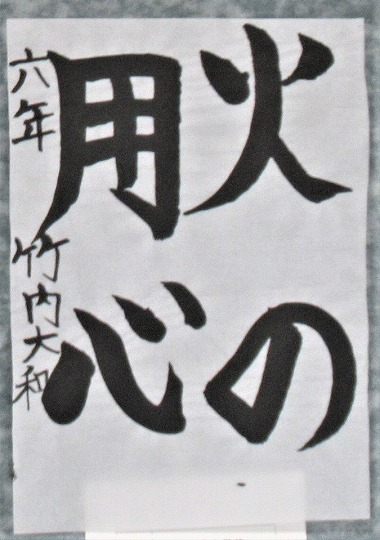 火の
用心
六年 竹内大和